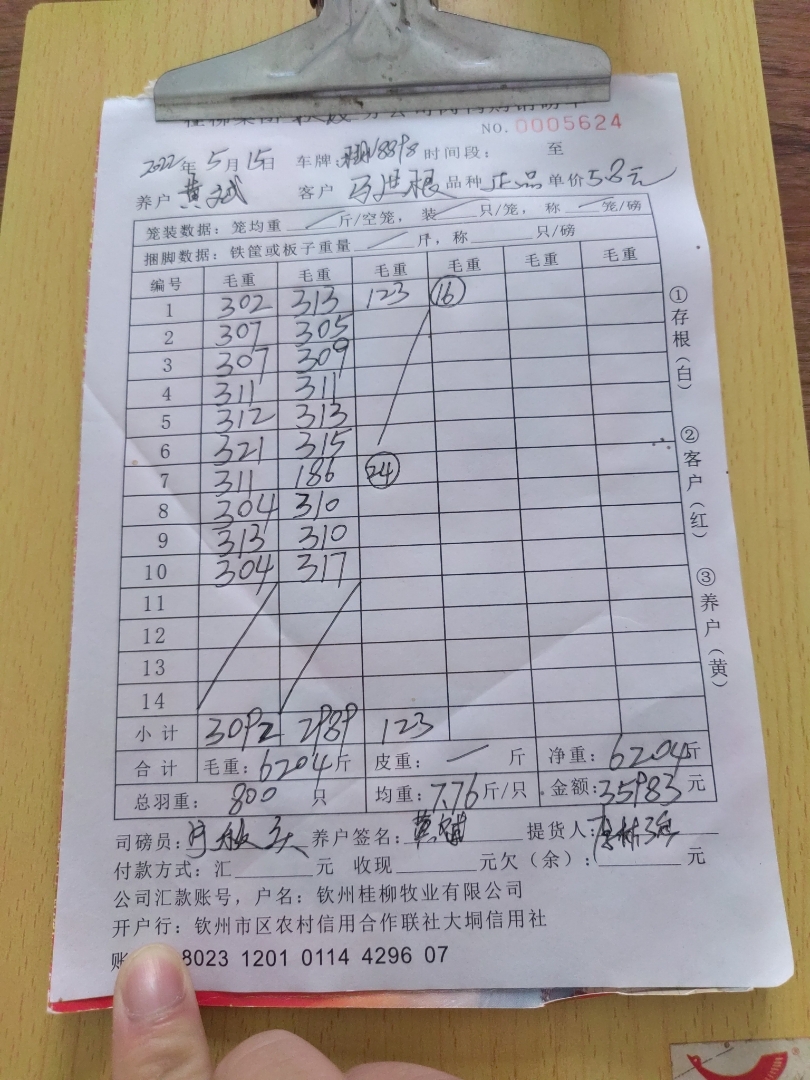 NO. 0005624
2022年5月15日 车牌: 时间段: 至
养户 黄斌 客户 品种 正品 单价 5.8元
笼装数据: 笼均重 斤/空笼, 装 只/笼, 称 笼/磅
捆脚数据: 铁筐或板子重量 斤, 称 只/磅
编号 毛重 毛重 毛重 毛重 毛重 毛重
1 302 313 123 16
2 307 305
3 307 309
4 311 311
5 312 313
6 321 315
7 311 186 24
8 304 310
9 313 310
10 304 317
11
12
13
14
小计 3092 2989 123
合计 毛重: 6204斤 皮重: 斤 净重: 6204斤
总羽重: 800 只 均重: 7.76斤/只 金额: 35983元
司磅员: 养户签名: 黄斌 提货人:
付款方式: 汇 元 收现 元欠(余): 元
公司汇款账号, 户名: 钦州桂柳牧业有限公司
开户行: 钦州市区农村信用合作联社大垌信用社
账 8023 1201 0114 4296 07
①存根(白)
②客户(红)
③养户(黄)